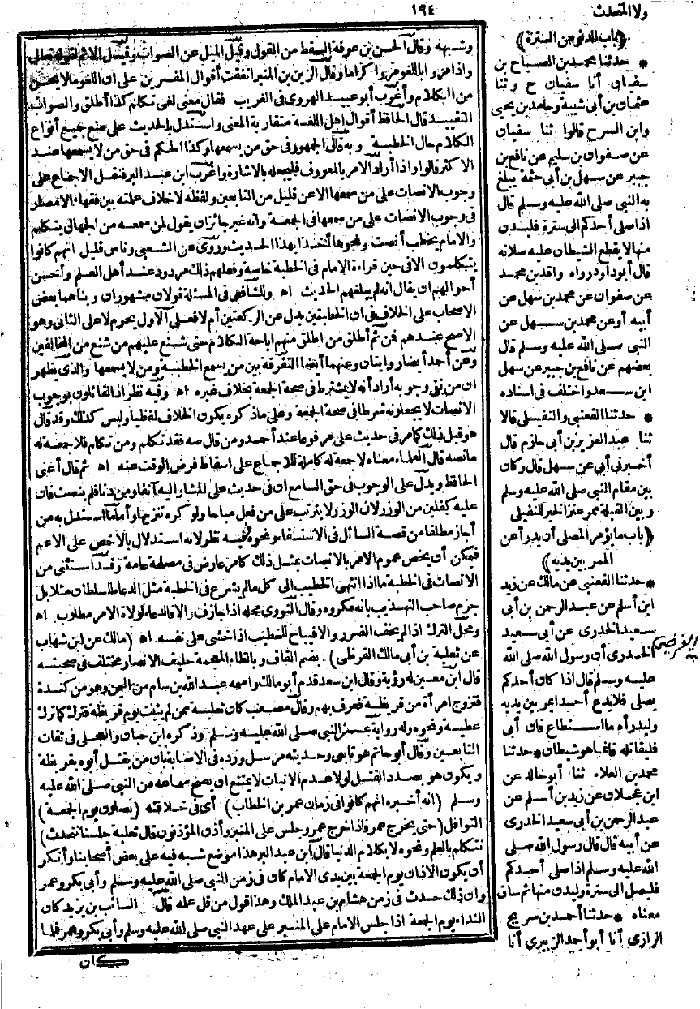 ١٩٤
وشبهه وقال الحسن بن عرفة السقط من القول وقيل الميل عن الصواب وقيل الاثم لقوله تعالى
واذا مروا باللغو مروا كراما وقال الزين بن المنير اتفقت أقوال المفسرين على ان اللغو ما لا يحسن
من الكلام وأغرب أبو عبيد الهروى فى الغريب فقال معنى لغى تكلم كذا أطلق والصواب
التقييد قال الحافظ أقوال أهل اللغة متقاربة المعنى واستدل بالحديث على منع جميع أنواع
الكلام حال الخطبة وبه قال الجمهور فى حق من يسمعها وكذا الحكم فى حق من لا يسمعها عند
الاكثر قالوا واذا أراد الامر بالمعروف فليجعله بالاشارة واغرب ابن عبد البر فنقل الاجماع على
وجوب الانصات على من سمعها الا عن قليل من التابعين ولفظه لا خلاف علمته بين فقهاء الامصار
فى وجوب الانصات على من سمعها فى الجمعة وانه غير جائز ان يقول لمن سمعه من الجهال يتكلم
والامام يخطب أنصت ونحوها أخذا بهذا الحديث وروى عن الشعبى وناس قليل انهم كانوا
يتكلمون الا فى حين قراءة الامام فى الخطبة خاصة وفعلهم ذلك مردود عند أهل العلم وأحسن
أحوالهم ان يقال انه لم يبلغهم الحديث اه وللشافعى فى المسئلة قولان مشهوران وبناهما بعض
الاصحاب على الخلاف فى ان الخطبتين بدل عن الركعتين أم لا فعلى الأول يحرم لا على الثانى وهو
الاصح عندهم فمن ثم أطلق من اطلق منهم اباحة الكلام حتى شنع عليهم من شنع من المخالفين
وعن أحمد أيضا روايتان وعنهما أيضا التفرقة بين من يسمع الخطبة ومن لا يسمعها والذى يظهر
ان من نفى وجوبه أراد أنه لا يشترط فى صحة الجمعة بخلاف غيره اه وفيه نظر اذ القائلون بوجوب
الانصات لا يجعلونه شرطا فى صحة الجمعة وعلى ما ذكره يكون الخلاف لفظيا وليس كذلك وقد قال
هو قبل ذلك كما مر فى حديث على مرفوعا عند أحمد ومن قال صه فقد تكلم ومن تكلم فلا جمعة له
ما نصه قال العلماء معناه لا جمعة له كاملة للاجماع على اسقاط فرض الوقت عنه اه ثم قال أعنى
الحافظ ويدل على الوجوب فى حق السامع ان فى حديث على المشار اليه آنفا ومن دنا فلم ينصت كان
عليه كفلين من الوزر لان الوزر لا يترتب على من فعل مباحا ولو كره تنزيها وأما ما استدل به من
أجاز مطلقا من قصة السائل فى الاستسقاء ونحوه ففيه نظر لانه استدلال بالأخص على الاعم
فيمكن أن يخص عموم الامر بالانصات بمثل ذلك كامر عارض فى مصلحة عامة وقد استثنى من
الانصات فى الخطبة ما اذا انتهى الخطيب الى كل ما لم يشرع فى الخطبة مثل الدعاء للسلطان مثلا بل
جزم صاحب التهذيب بانه مكروه وقال النووى محله اذا جازف والا فالدعاء لولاة الامر مطلوب اه
ومحل الترك اذا لم يخف الضرر والا فيباح للخطيب اذا خشى على نفسه اه (مالك عن ابن شهاب
عن ثعلبة بن أبى مالك القرظى) بضم القاف وبالظاء المعجمة حليف الانصار مختلف فى صحبته
قال ابن معين له رؤية وقال ابن سعد قدم أبو مالك واسمه عبد الله بن سام من اليمن وهو من كندة
فتزوج امرأة من قريظة فعرف بهم وقال مصعب كان ثعلبة ممن لم يثبت يوم قريظة فترك كما ترك
عطية ونحوه وله رواية عن النبى صلى الله عليه وسلم وذكره ابن حبان والعجلى فى ثقات
التابعين وقال أبو حاتم هو تابعى وحديثه مرسل ورده فى الاصابة بان من يقتل أبوه بقريظة
ويكون هو بصدد القتل لولا عدم الانبات لا يمتنع ان يصح سماعه من النبى صلى الله عليه
وسلم (انه أخبره انهم كانوا فى زمان عمر بن الخطاب) أى فى خلافته (يصلون يوم الجمعة)
النوافل (حتى يخرج عمر فاذا خرج عمر وجلس على المنبر وأذن المؤذنون قال ثعلبة جلسنا نتحدث)
نتكلم بالعلم ونحوه لا بكلام الدنيا قال ابن عبد البر هذا موضع شبه فيه على بعض أصحابنا وأنكر
أن يكون الاذان يوم الجمعة بين يدى الامام كان فى زمن النبى صلى الله عليه وسلم وأبى بكر وعمر
وان ذلك حدث فى زمن هشام بن عبد الملك وهذا قول من قل علمه قال السائب بن يزيد كان
النداء يوم الجمعة اذا جلس الامام على المنبر على عهد النبى صلى الله عليه وسلم وأبى بكر وعمر فلما
كان
ولا المتحدث
(باب الدنو من السترة)
* حدثنا محمد بن الصباح بن
سفيان أنا سفيان ح وثنا
عثمان بن أبى شيبة وحامد بن يحيى
وابن السرح قالوا ثنا سفيان
عن صفوان بن سليم عن نافع بن
جبير عن سهل بن أبى حثمة يبلغ
به النبى صلى الله عليه وسلم قال
اذا صلى أحدكم الى سترة فليدن
منها لا يقطع الشيطان عليه صلاته
قال أبو داود رواه واقد بن محمد
عن صفوان عن محمد بن سهل عن
أبيه أو عن محمد بن سهل عن
النبى صلى الله عليه وسلم قال
بعضهم عن نافع بن جبير عن سهل
ابن سعد واختلف فى اسناده
* حدثنا القعنبى والنفيلى قالا
ثنا عبد العزيز بن أبى حازم قال
أخبرنى أبى عن سهل قال وكان
بين مقام النبى صلى الله عليه وسلم
وبين القبلة ممر عنز الخبر للنفيلى
(باب ما يؤمر المصلى أن يدرأ عن
الممر بين يديه)
* حدثنا القعنبى عن مالك عن زيد
ابن أسلم عن عبد الرحمن بن أبى
سعيد الخدرى عن أبى سعيد
الخدرى أن رسول الله صلى الله
عليه وسلم قال اذا كان أحدكم
يصلى فلا يدع أحدا يمر بين يديه
وليدرأه ما استطاع فان أبى
فليقاتله فانما هو شيطان * حدثنا
محمد بن العلاء ثنا أبو خالد عن
ابن عجلان عن زيد بن أسلم عن
عبد الرحمن بن أبى سعيد الخدرى
عن أبيه قال قال رسول الله صلى
الله عليه وسلم اذا صلى أحدكم
فليصل الى سترة وليدن منها ثم ساق
معناه * حدثنا أحمد بن سريج
الرازى أنا أبو أحمد الزبيرى أنا